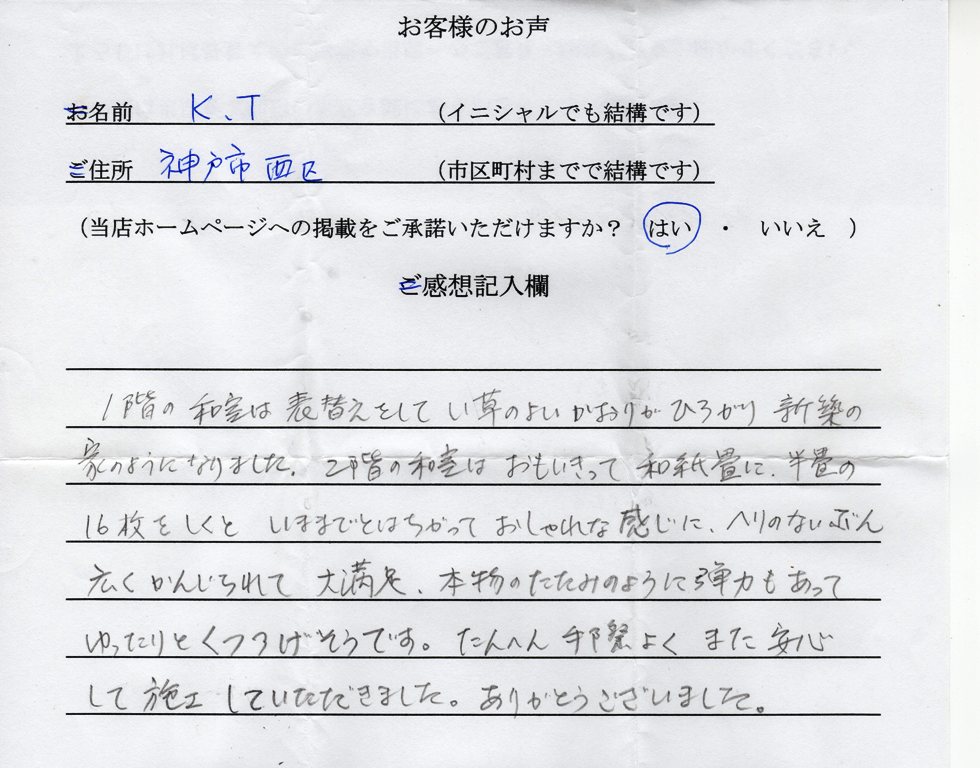 お客様のお声
お名前 K、T (イニシャルでも結構です)
ご住所 神戸市西区 (市区町村までで結構です)
(当店ホームページへの掲載をご承諾いただけますか？ はい ・ いいえ )
ご感想記入欄
1階の和室は表替えをしてい草のよいかおりがひろがり新築の
家のようになりました。2階の和室はおもいきって和紙畳に、半畳の
16枚をしくといままでとはちがっておしゃれな感じに、ヘリのないぶん
広くかんじられて大満足、本物のたたみのように弾力もあって
ゆったりとくつろげそうです。たいへん手際よくまた安心
して施工していただきました。ありがとうございました。